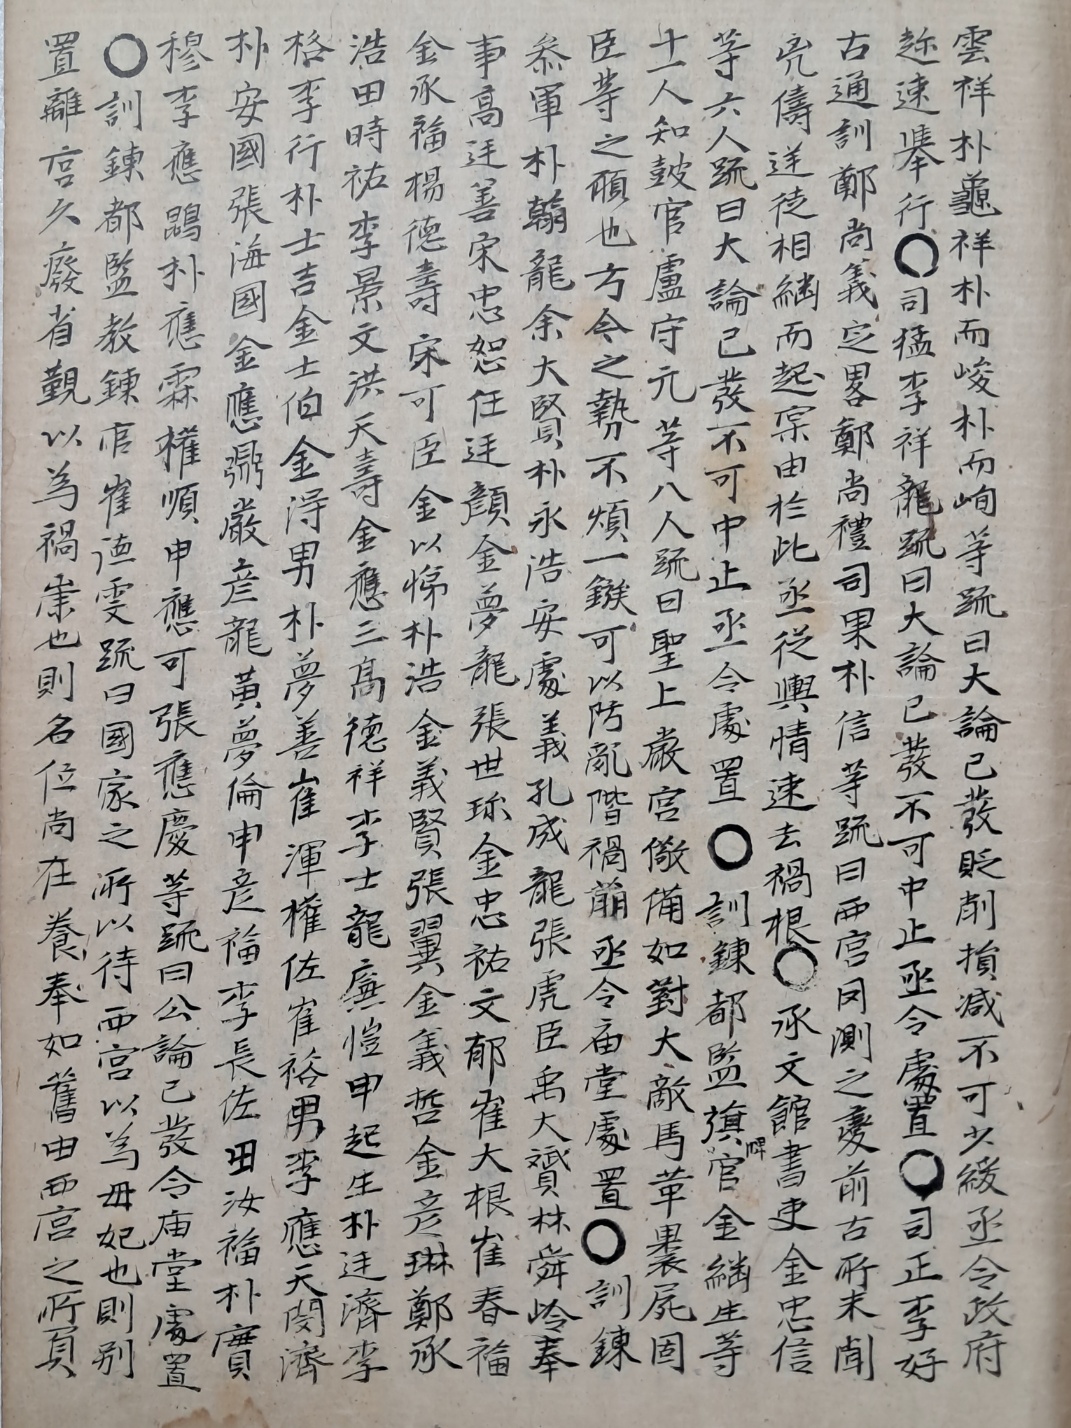 雲祥朴龜祥朴而峻朴而峋等䟽曰大論已發貶削損减不可少緩丞令政府
趂速擧行○司猛李祥龍䟽曰大論已發不可中止丞令處置○司正李好
古通訓鄭尚義定畧鄭尚禮司果朴信等䟽曰西宮罔測之憂前古所未聞
兇儔逆徒相繼而起禀由於此丞從輿情速去禍根○承文館書吏金忠信
等六人䟽曰大論已發不可中止丞令處置○訓鍊都監旗牌官金繼生等
十一人知皷官盧守元等八人䟽曰聖上嚴宮儆備如對大敵馬革裹屍固
臣等之願也方今之勢不煩一鏃可以防亂階禍萠丞令庙堂處置○訓鍊
叅軍朴翰龍余大賢朴永浩安處義孔成龍張虎臣禹大賚林舜岭奉
事高廷善宋忠恕任廷顔金夢龍張世珎金忠祐文郁崔大根崔春福
金承福楊德壽宋可臣金以悌朴浩金義賢張翼金義哲金彦琳鄭承
浩田時祐李景文洪天壽金應三高德祥李士龍廉愷申起生朴廷濟李
格李行朴士吉金士伯金淂男朴夢善崔渾權佐崔裕男李應天閔濟
朴安國張海國金應鼎嚴彦龍黃夢倫申彦福李長佐田汝福朴賓
穆李應鵾朴應霖權順申應可張應慶等䟽曰公論已發令庙堂處置
○訓鍊都監教鍊官崔德雯䟽曰國家之所以待西宮以為毋妃也則别
置離宮久廢省覲以為禍祟也則名位尚在養奉如舊由西宮之所負